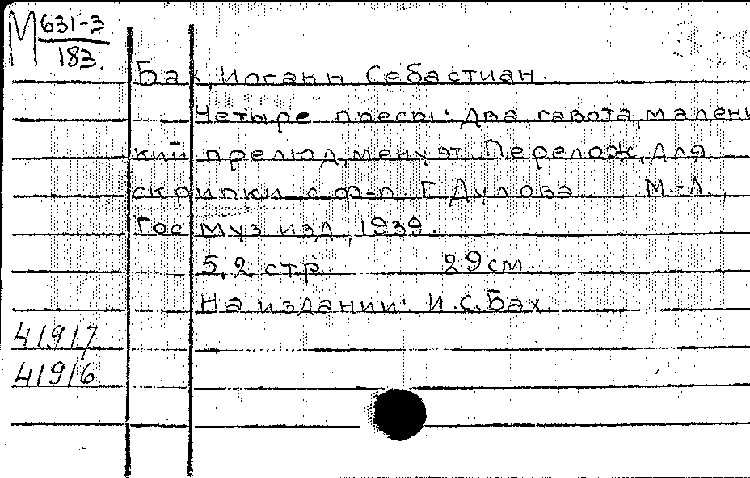 М 631-3
183.
Бах, Иоганн Себастиан
Четыре пьесы: Два гавота, малень
кий прелюд, менуэт. Перелож. для
скрипки с ф-п. Г. Дулова М.-Л.,
Гос муз изд, 1939.
5, 2 стр 29 см
На издании: И.С. Бах
41917
41916